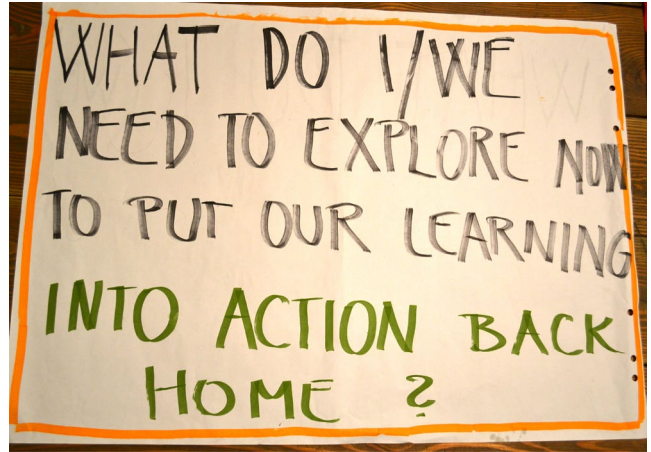 WHAT DO I/WE
NEED TO EXPLORE NOW
TO PUT OUR LEARNING
INTO ACTION BACK
HOME ?